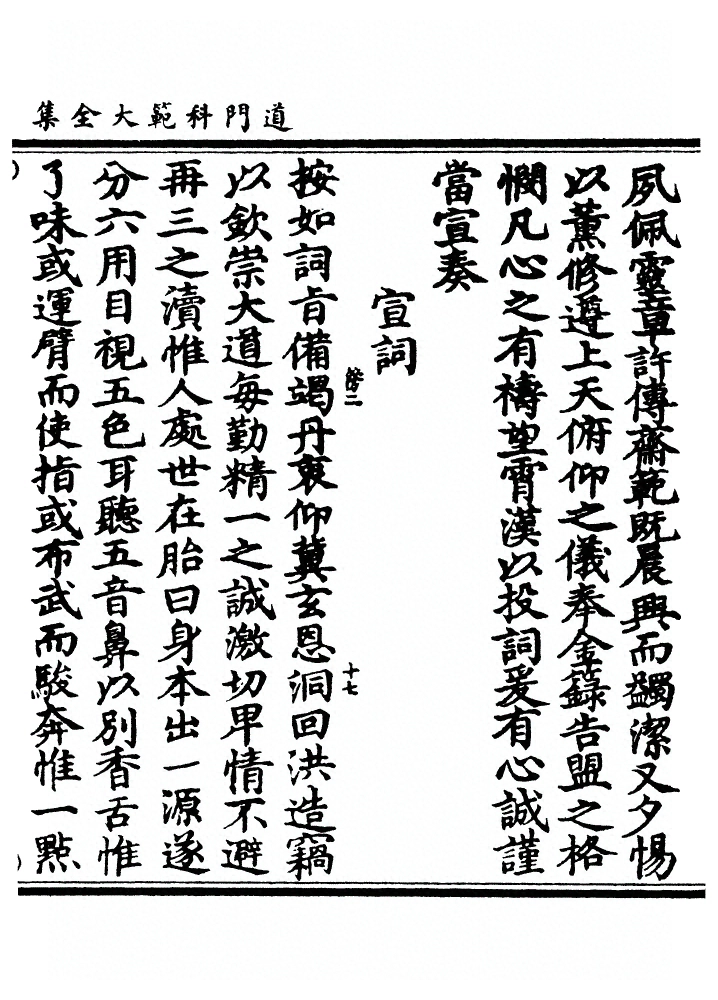 道門科範大全集
夙佩靈章許傳齋範既晨興而蠲潔又夕惕
以薰修遵上天俯仰之儀奉金籙告盟之格
憫凡心之有禱望霄漢以投詞爰有心誠謹
當宣奏
宣詞
按如詞旨備竭丹衷仰冀玄恩洞回洪造竊
以欽崇大道每勤精一之誠激切卑情不避
再三之瀆惟人處世在胎曰身本出一源遂
分六用目視五色耳聽五音鼻以別香舌惟
了味或運臂而使指或布武而駿奔惟一點
十七